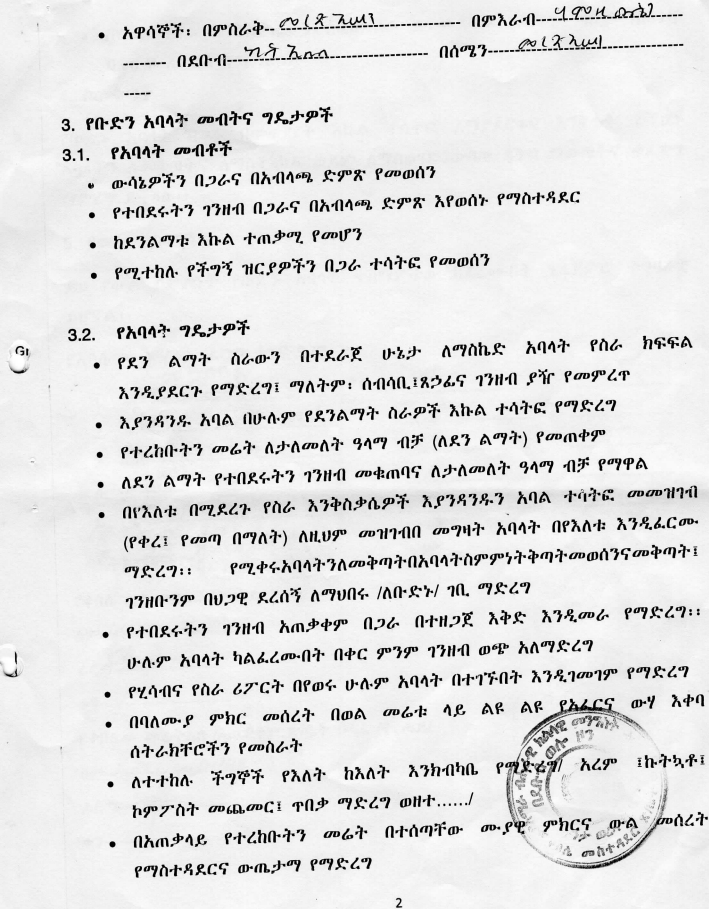 • አዋሳኞች፡ በምስራቅ-- መሪት አጠገ ---------------------- በምእራብ---------------------
-------- በደቡብ---------------------------- በሰሜን----------------------------
-----
3. የቡድን አባላት መብትና ግዴታዎች
3.1. የአባላት መብቶች
• ውሳኔዎችን በጋራና በአብላጫ ድምጽ የመወሰን
• የተበደሩትን ገንዘብ በጋራና በአብላጫ ድምጽ እየወሰኑ የማስተዳደር
• ከደንልማቱ እኩል ተጠቃሚ የመሆን
• የሚተከሉ የችግኝ ዝርያዎችን በጋራ ተሳትፎ የመወሰን
3.2. የአባላት ግዴታዎች
• የደን ልማት ስራውን በተደራጀ ሁኔታ ለማስኬድ አባላት የስራ ክፍፍል
እንዲያደርጉ የማድረግ፤ ማለትም፡ ሰብሳቢ፤ጸኃፊና ገንዘብ ያዥ የመምረጥ
• እያንዳንዱ አባል በሁሉም የደንልማት ስራዎች እኩል ተሳትፎ የማድረግ
• የተረከቡትን መሬት ለታለመለት ዓላማ ብቻ (ለደን ልማት) የመጠቀም
• ለደን ልማት የተበደሩትን ገንዘብ መቁጠባና ለታለመለት ዓላማ ብቻ የማዋል
• በየእለቱ በሚደረጉ የስራ እንቅስቃሴዎች እያንዳንዱን አባል ተሳትፎ መመዝገብ
(የቀረ፤ የመጣ በማለት) ለዚህም መዝገብበ መግዛት አባላት በየእለቱ እንዲፈርሙ
ማድረግ፡፡ የሚቀሩአባላትንለመቅጣትበአባላትስምምነትቅጣትመወሰንናመቅጣት፤
ገንዘቡንም በህጋዊ ደረሰኝ ለማህበሩ /ለቡድኑ/ ገቢ ማድረግ
• የተበደሩትን ገንዘብ አጠቃቀም በጋራ በተዘጋጀ እቅድ እንዲመራ የማድረግ፡፡
ሁሉም አባላት ካልፈረሙበት በቀር ምንም ገንዘብ ወጭ አለማድረግ
• የሂሳብና የስራ ሪፖርት በየወሩ ሁሉም አባላት በተገኙበት እንዲገመገም የማድረግ
• በባለሙያ ምክር መሰረት በወል መሬቱ ላይ ልዩ ልዩ የአፈርና ውሃ እቀባ
ሰትራክቸሮችን የመስራት
• ለተተከሉ ችግኞች የእለት ከእለት እንክብካቤ የማድረግ/ አረም ፤ኩትኳቶ፤
ኮምፖስት መጨመር፤ ጥበቃ ማድረግ ወዘተ....../
• በአጠቃላይ የተረከቡትን መሬት በተሰጣቸው ሙያዊ ምክርና ውል መሰረት
የማስተዳደርና ውጤታማ የማድረግ
2